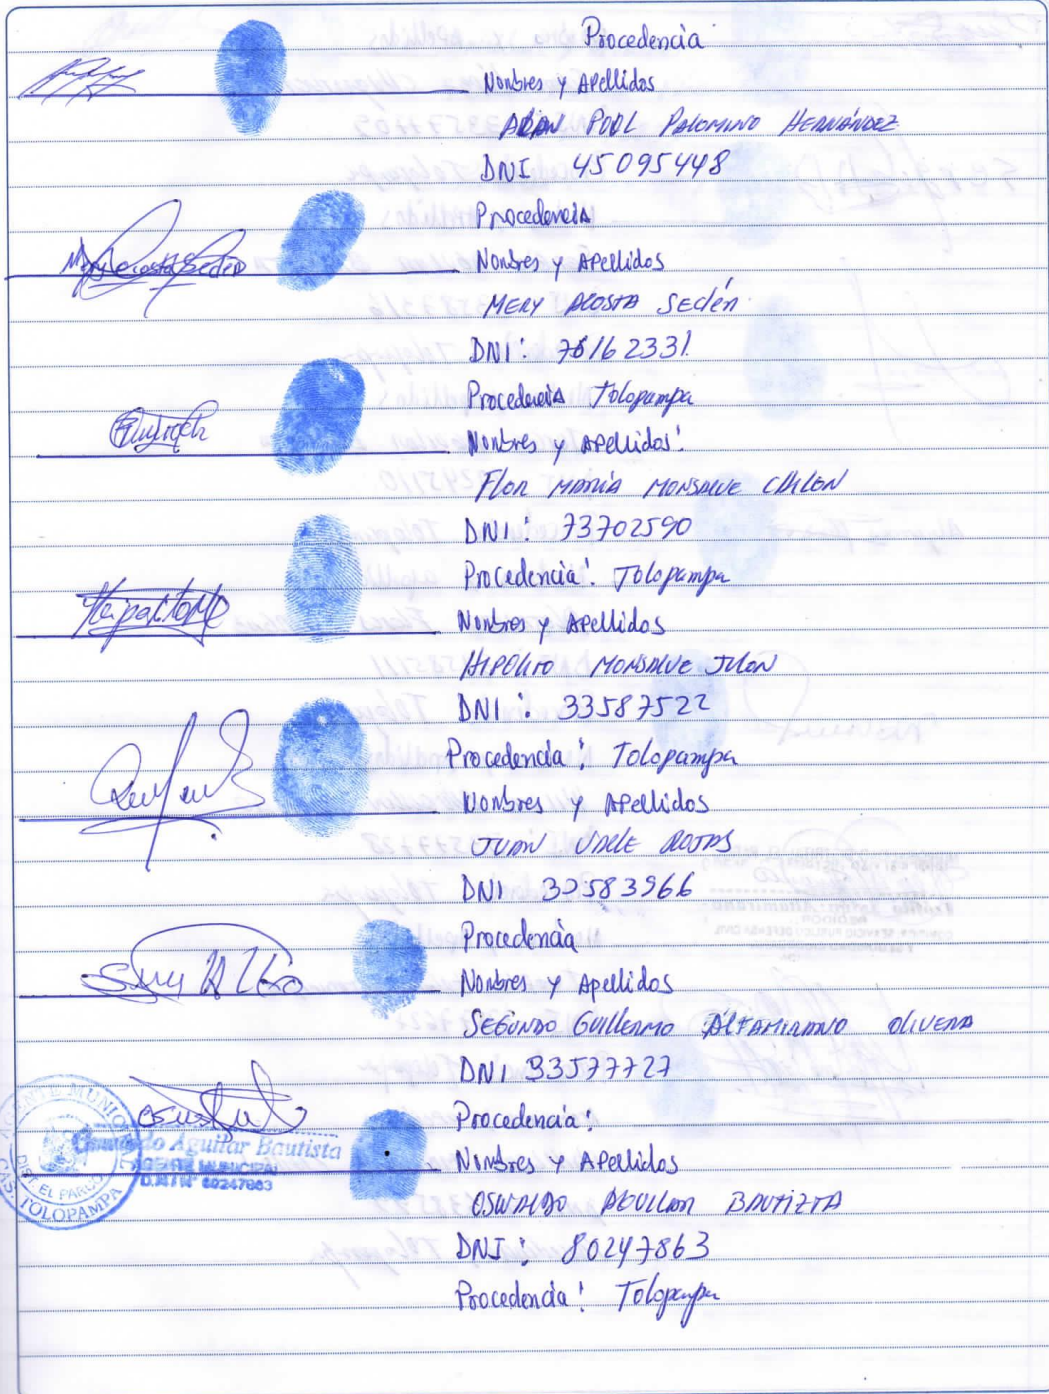 Procedencia
Nombres y Apellidos
POOL PALOMINO HERNÁNDEZ
DNI 45095448
Procedencia
Nombres y Apellidos
MERY ACOSTA Sedén
DNI: 78162331
Procedencia Tolopampa
Nombres y Apellidos:
Flor MARÍA MONSALVE CHILON
DNI: 73702590
Procedencia: Tolopampa
Nombres y Apellidos
HIPOLITO MONSALVE JULON
DNI: 33587522
Procedencia: Tolopampa
Nombres y Apellidos
JUAN ROJAS
DNI 33583966
Procedencia
Nombres y Apellidos
SEGUNDO GUILLERMO ALTAMIRANO OLIVERA
DNI 33577727
Procedencia:
Aguilar Bautista
AGENTE MUNICIPAL
D.N.I N° 80247863
CAS. TOLOPAMPA
Nombres y Apellidos
OSWALDO AGUILAR BAUTIZTA
DNI: 80247863
Procedencia: Tolopampa